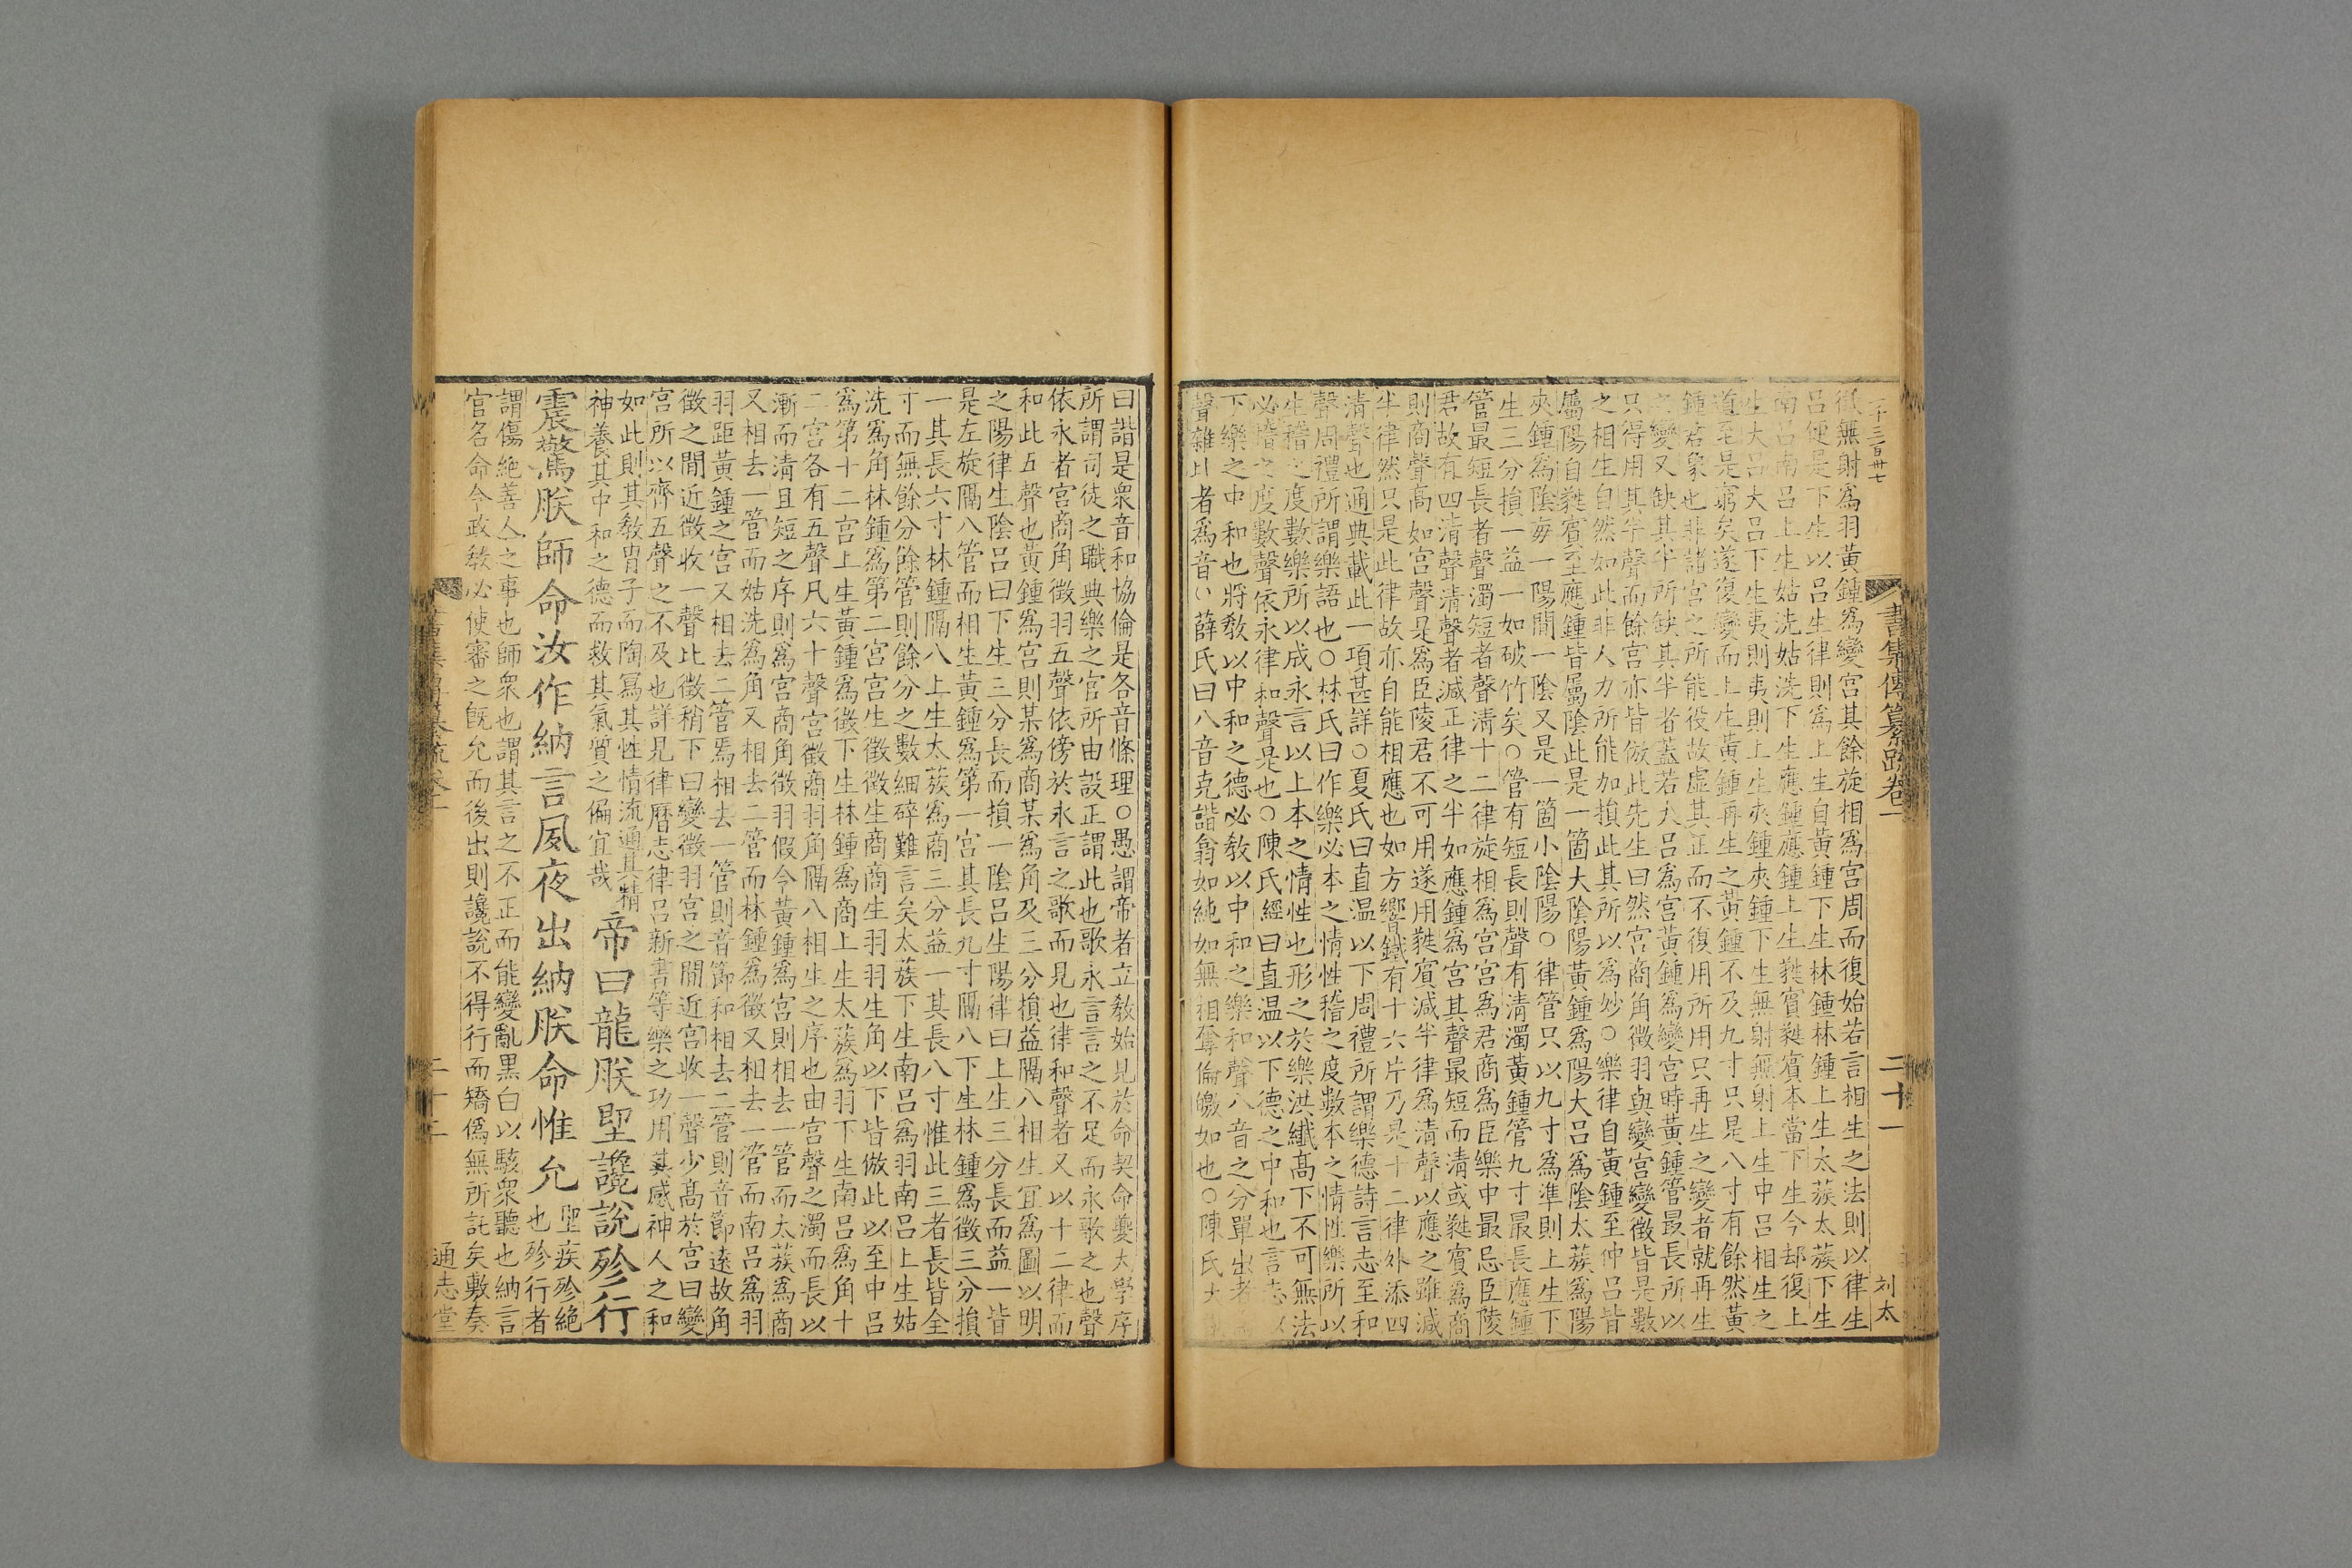 二十三百卅七
書集傳纂疏卷一
二十一
刘太
徵無射爲羽黃鍾爲變宮其餘旋相爲宮周而復始若言相生之法則以律生
呂便是下生以呂生律則爲上生自黃鍾下生林鍾林鍾上生太蔟太蔟下生
南呂南呂上生姑洗姑洗下生應鍾應鍾上生蕤賓蕤賓本當下生今却復上
生大呂大呂下生夷則夷則上生夾鍾夾鍾下生無射無射上生中呂相生之
道至是窮矣遂復變而上生黃鍾再生之黃鍾不及九寸只是八寸有餘然黃
鍾君象也非諸宮之所能役故虛其正而不復用所用只再生之變者就再生
之變又缺其半所缺其半者蓋若大呂爲宮黃鍾爲變宮時黃鍾管最長所以
只得用其半聲而餘宮亦皆倣此先生曰然宮商角徵羽與變宮變徵皆是數
之相生自然如此非人力所能加損此其所以爲妙○樂律自黃鍾至仲呂皆
屬陽自蕤賓至應鍾皆屬陰此是一箇大陰陽黃鍾爲陽大呂爲陰太蔟爲陽
夾鍾爲陰每一陽間一陰又是一箇小陰陽○律管只以九寸爲準則上生下
生三分損一益一如破竹矣○管有短長則聲有清濁黃鍾管九寸最長應鍾
管最短長者聲濁短者聲清十二律旋相爲宮宮爲君商爲臣樂中最忌臣陵
君故有四清聲清聲者減正律之半如應鍾爲宮其聲最短而清或蕤賓爲商
則商聲高如宮聲是爲臣陵君不可用遂用蕤賓減半律爲清聲以應之雖減
半律然只是此律故亦自能相應也如方響鐵有十六片乃是十二律外添四
清聲也通典載此一項甚詳○夏氏曰直温以下周禮所謂樂德詩言志至和
聲周禮所謂樂語也○林氏曰作樂必本之情性稽之度數本之情性樂所以
生稽之度數樂所以成永言以上本之情性也形之於樂洪纖高下不可無法
必稽之度數聲依永律和聲是也○陳氏經曰直温以下德之中和也言志以
下樂之中和也將敎以中和之德必敎以中和之樂和聲八音之分單出者
聲雜比者爲音○薛氏曰八音克諧翕如純如無相奪倫皦如也○陳氏大
曰諧是衆音和協倫是各音條理○愚謂帝者立敎始見於命契命夔大學序
所謂司徒之職典樂之官所由設正謂此也歌永言言之不足而永歌之也聲
依永者宮商角徵羽五聲依傍於永言之歌而見也律和聲者又以十二律而
和此五聲也黃鍾爲宮則某爲商某爲角及三分損益隔八相生宜爲圖以明
之陽律生陰呂曰下生三分長而損一陰呂生陽律曰上生三分長而益一皆
是左旋隔八管而相生黃鍾爲第一宮其長九寸隔八下生林鍾爲徵三分損
一其長六寸林鍾隔八上生太蔟爲商三分益一其長八寸惟此三者長皆全
寸而無餘分餘管則餘分之數細碎難言矣太蔟下生南呂爲羽南呂上生姑
洗爲角林鍾爲第二宮宮生徵徵生商商生羽羽生角以下皆倣此以至中呂
爲第十二宮上生黃鍾爲徵下生林鍾爲商上生太蔟爲羽下生南呂爲角十
二宮各有五聲凡六十聲宮徵商羽角隔八相生之序也由宮聲之濁而長以
漸而清且短之序則爲宮商角徵羽假令黃鍾爲宮則相去一管而太蔟爲商
又相去一管而姑洗爲角又相去二管而林鍾爲徵又相去一管而南呂爲羽
羽距黃鍾之宮又相去二管焉相去一管則音節和相去二管則音節遠故角
徵之間近徵收一聲比徵稍下曰變徵羽宮之間近宮收一聲少高於宮曰變
宮所以濟五聲之不及也詳見律曆志律呂新書等樂之功用其感神人之和
如此則其敎胄子而陶冩其性情流通其精
神養其中和之德而救其氣質之偏宜哉
帝曰龍朕堲讒說殄行
震驚朕師命汝作納言夙夜出納朕命惟允
堲疾殄絕
也殄行者
謂傷絕善人之事也師衆也謂其言之不正而能變亂黑白以駭衆聽也納言
官名命令政敎必使審之旣允而後出則讒說不得行而矯僞無所託矣敷奏
二十二
通志堂